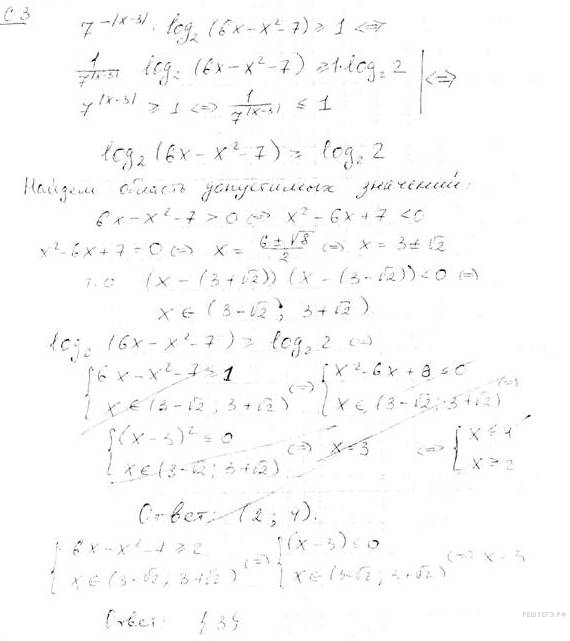 С3
7^{-|x-3|} · log₂(6x-x²-7) ≥ 1 <=>
1/7^{|x-3|} log₂(6x-x²-7) ≥ 1·log₂2 | <=>
7^{|x-3|} ≥ 1 <=> 1/7^{|x-3|} ≤ 1
log₂(6x-x²-7) ≥ log₂2
Найдем область допустимых значений:
6x-x²-7>0 <=> x²-6x+7<0
x²-6x+7=0 <=> x = (6±√8)/2 <=> x = 3±√2
т.о (x-(3+√2))(x-(3-√2))<0 <=>
x∈(3-√2; 3+√2)
log₂(6x-x²-7) ≥ log₂2 <=>
{ 6x-x²-7≥1 <=> { x²-6x+8≤0 <=>
x∈(3-√2; 3+√2) x∈(3-√2; 3+√2)
{ (x-3)²≤0 <=> x=3 <=> { x≤4
x∈(3-√2; 3+√2) x≥2
Ответ: (2; 4).
{ 6x-x²-7≥2 <=> { (x-3)≤0
x∈(3-√2; 3+√2) x∈(3-√2; 3+√2) <=> x=3
Ответ: {3}
РЕШУЕГЭ.РФ